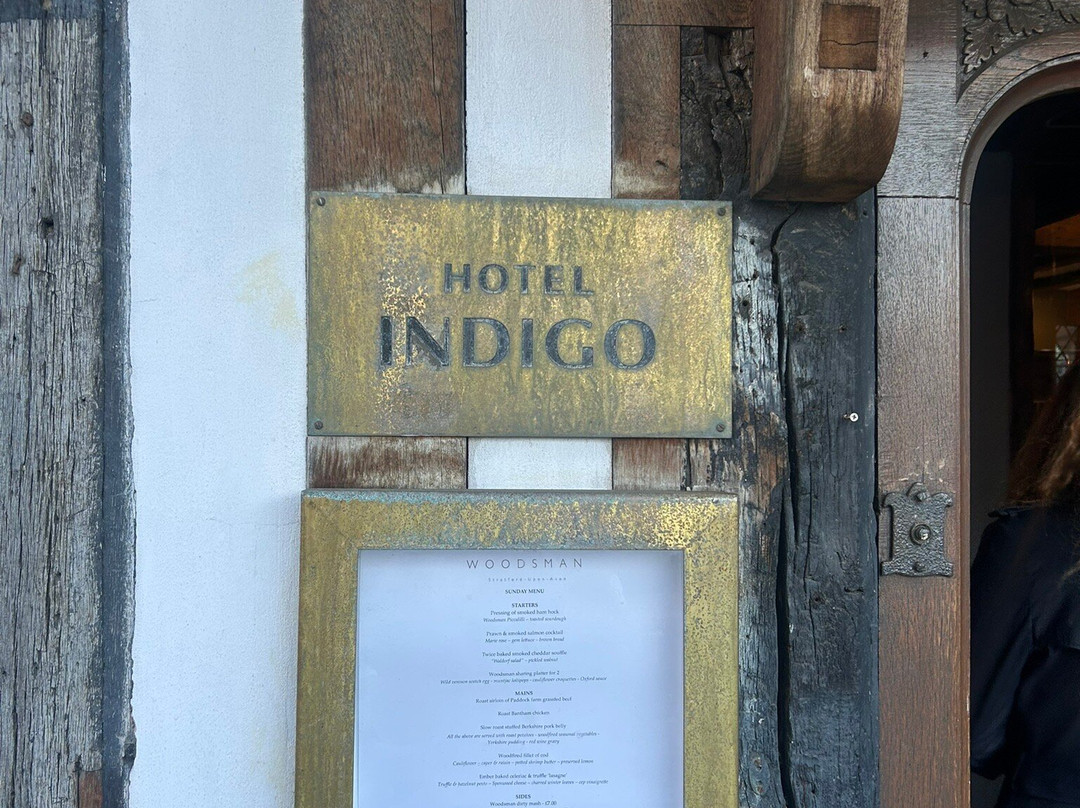 HOTEL
INDIGO
WOODSMAN
Stratford-Upon-Avon
SUNDAY MENU
STARTERS
Pressing of smoked ham hock
Woodsman Piccalilli – toasted sourdough
Prawn & smoked salmon cocktail
Marie rose – gem lettuce – brown bread
Twice baked smoked cheddar souffle
"Waldorf salad" – pickled walnut
Woodsman sharing platter for 2
Wild venison scotch egg – muntjac lollipops – cauliflower croquettes – Oxford sauce
MAINS
Roast sirloin of Paddock farm grassfed beef
Roast Barnham chicken
Slow roast stuffed Berkshire pork belly
All the above are served with roast potatoes – woodfired seasonal vegetables –
Yorkshire pudding – red wine gravy
Woodfired fillet of cod
Cauliflower – caper & raisin – potted shrimp butter – preserved lemon
Ember baked celeriac & truffle 'lasagne'
Truffle & hazelnut pesto – cheese – charred winter leaves – cep vinaigrette
SIDES
Woodsman dirty mash - £7.00